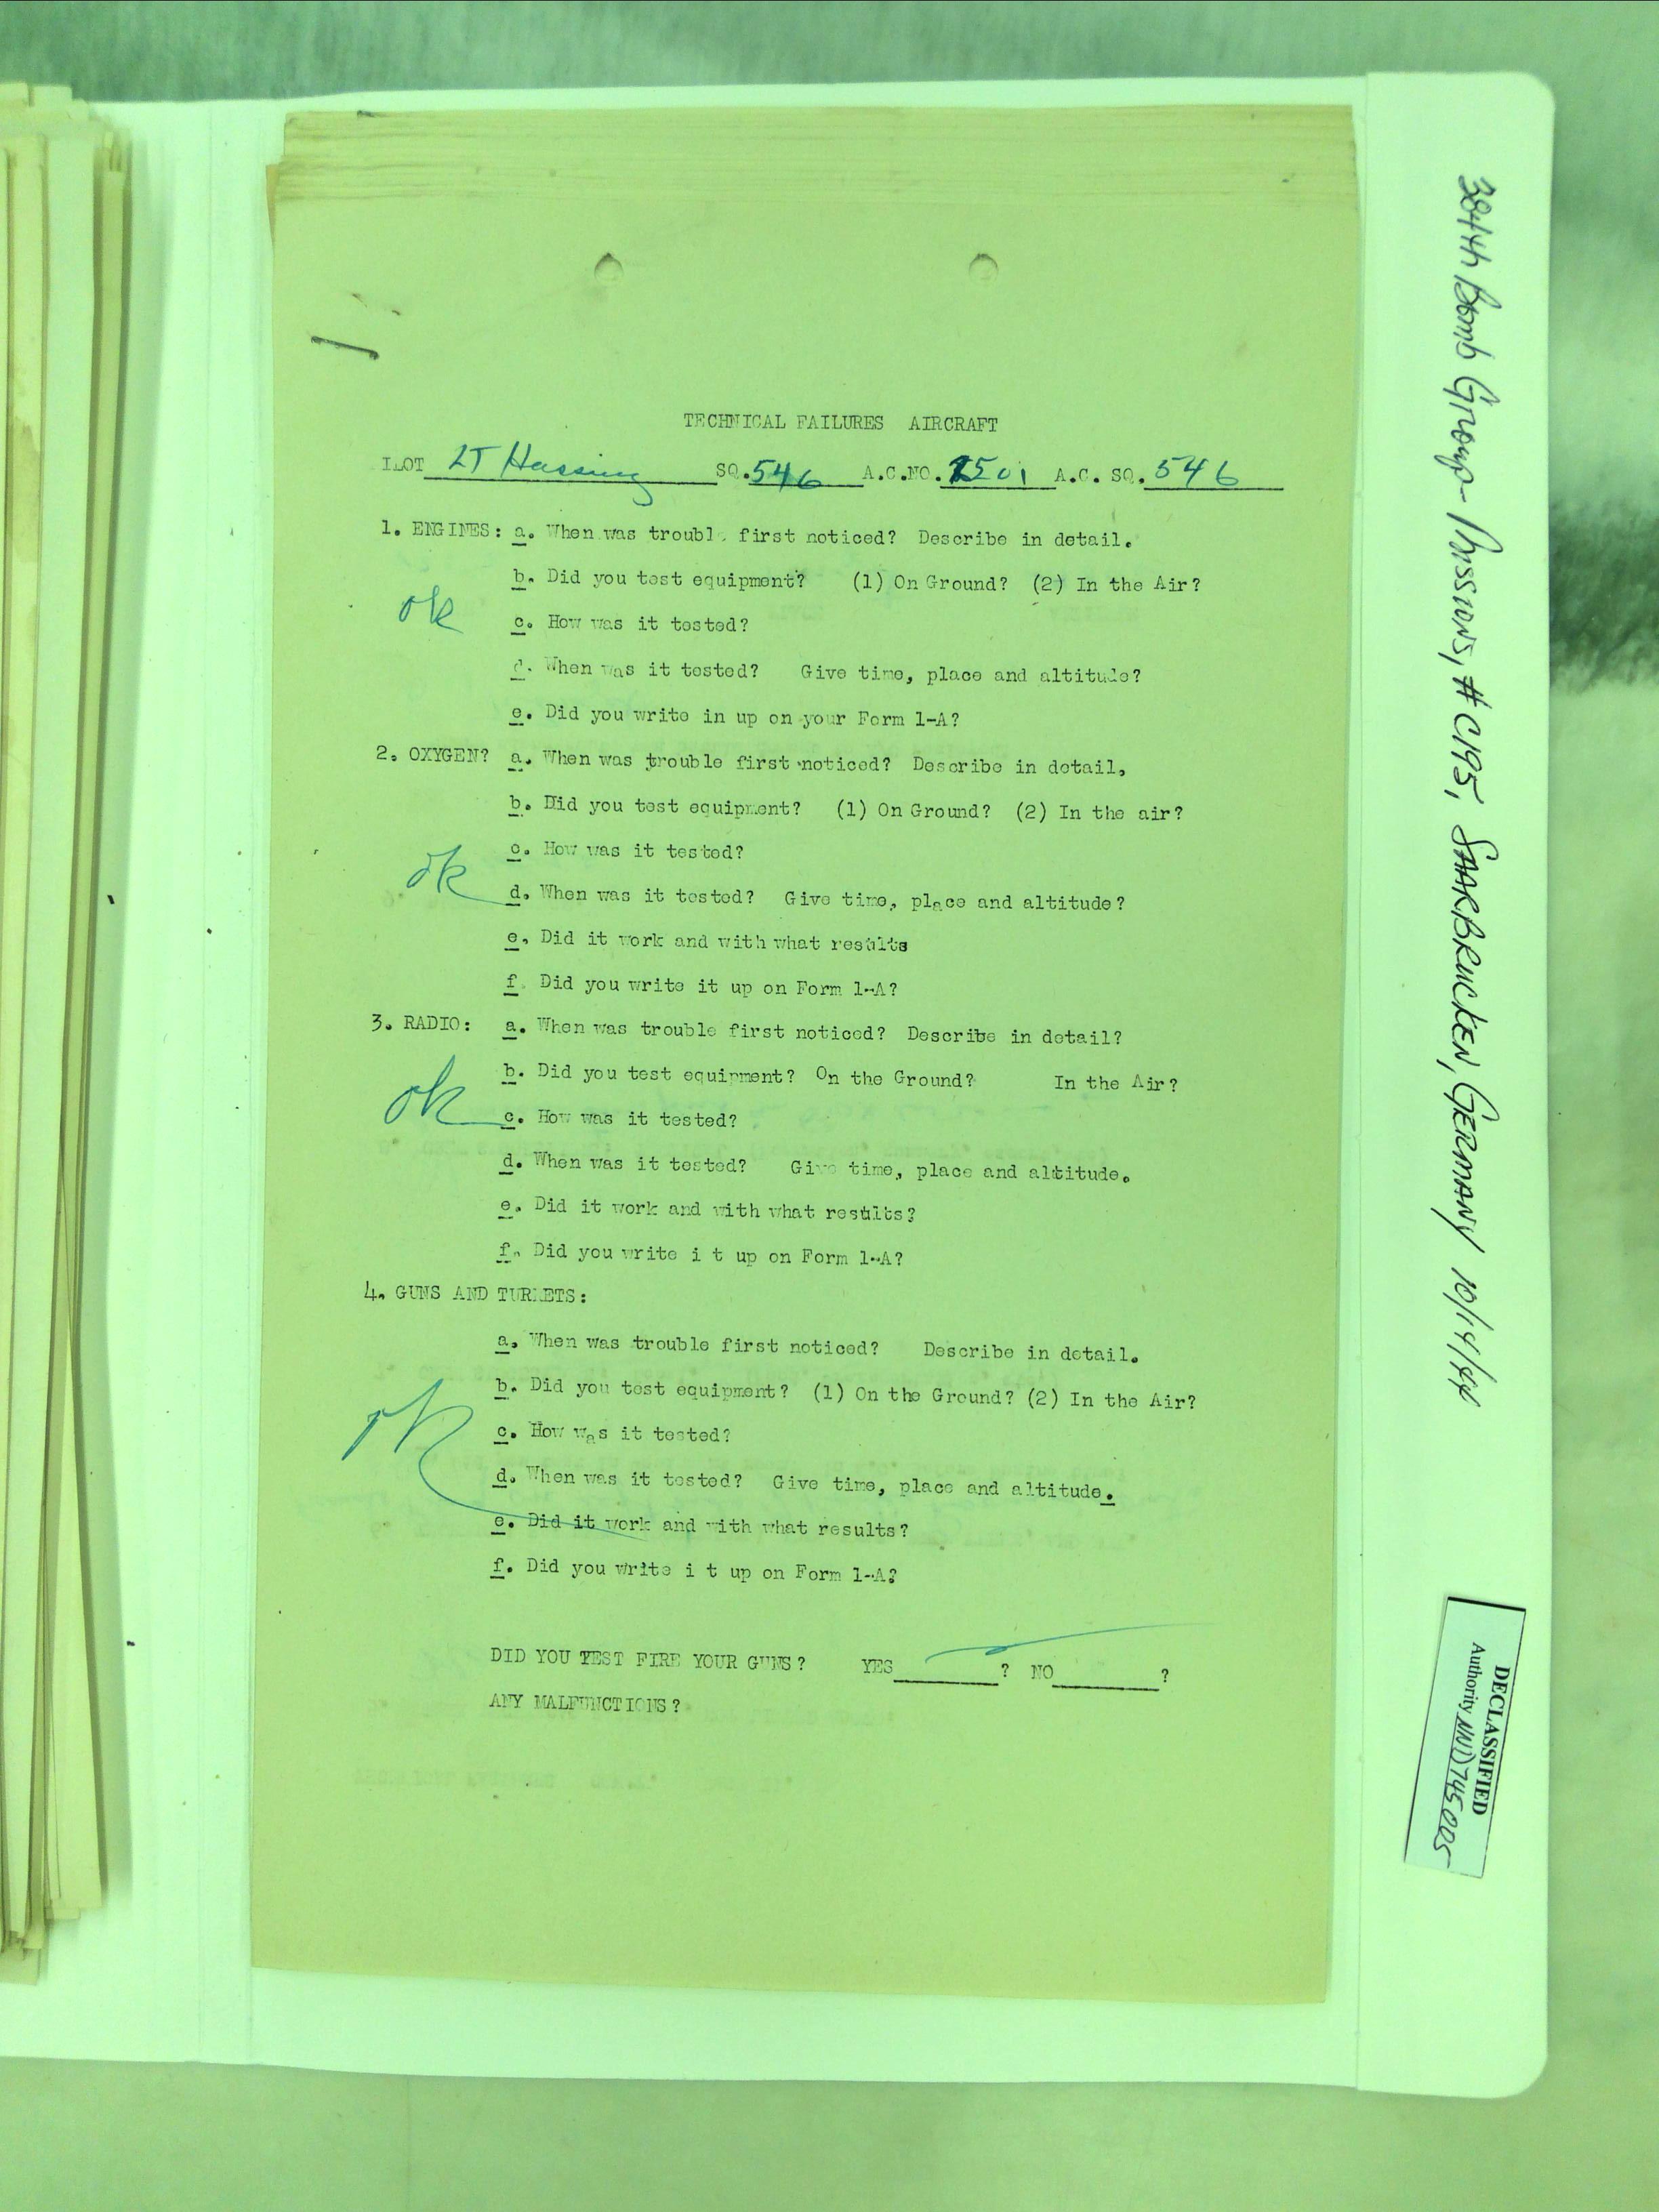 TECHNICAL FAILURES AIRCRAFT
ILOT LT Hassing SQ. 546 A.C.NO. 1501 A.C. SQ. 546
1. ENGINES: a. When was trouble first noticed? Describe in detail.
b. Did you test equipment? (1) On Ground? (2) In the Air?
ok
c. How was it tested?
d. When was it tested? Give time, place and altitude?
e. Did you write in up on your Form 1-A?
2. OXYGEN? a. When was trouble first noticed? Describe in detail,
b. Did you test equipment? (1) On Ground? (2) In the air?
c. How was it tested?
ok
d. When was it tested? Give time, place and altitude?
e. Did it work and with what results
f. Did you write it up on Form 1-A?
3. RADIO: a. When was trouble first noticed? Describe in detail?
b. Did you test equipment? On the Ground? In the Air?
ok
c. How was it tested?
d. When was it tested? Give time, place and altitude.
e. Did it work and with what results?
f. Did you write i t up on Form 1-A?
4. GUNS AND TURRETS:
a. When was trouble first noticed? Describe in detail.
b. Did you test equipment? (1) On the Ground? (2) In the Air?
ok
c. How was it tested?
d. When was it tested? Give time, place and altitude.
e. Did it work and with what results?
f. Did you write i t up on Form 1-A?
DID YOU TEST FIRE YOUR GUNS? YES ? NO ?
ANY MALFUNCTIONS?
384th Bomb Group - Missions, #C195, SAARBRUCKEN, GERMANY 10/14/44
DECLASSIFIED
Authority NND 745005